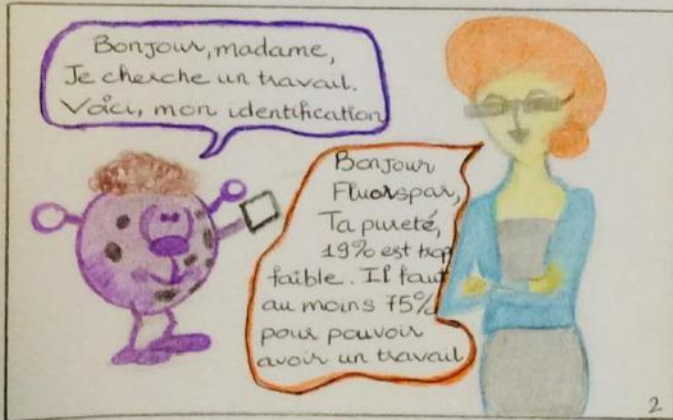 Bonjour, madame,
Je cherche un travail.
Voici, mon identification
Bonjour
Fluorspar,
Ta pureté,
19% est trop
faible. Il faut
au moins 75%
pour pouvoir
avoir un travail
2